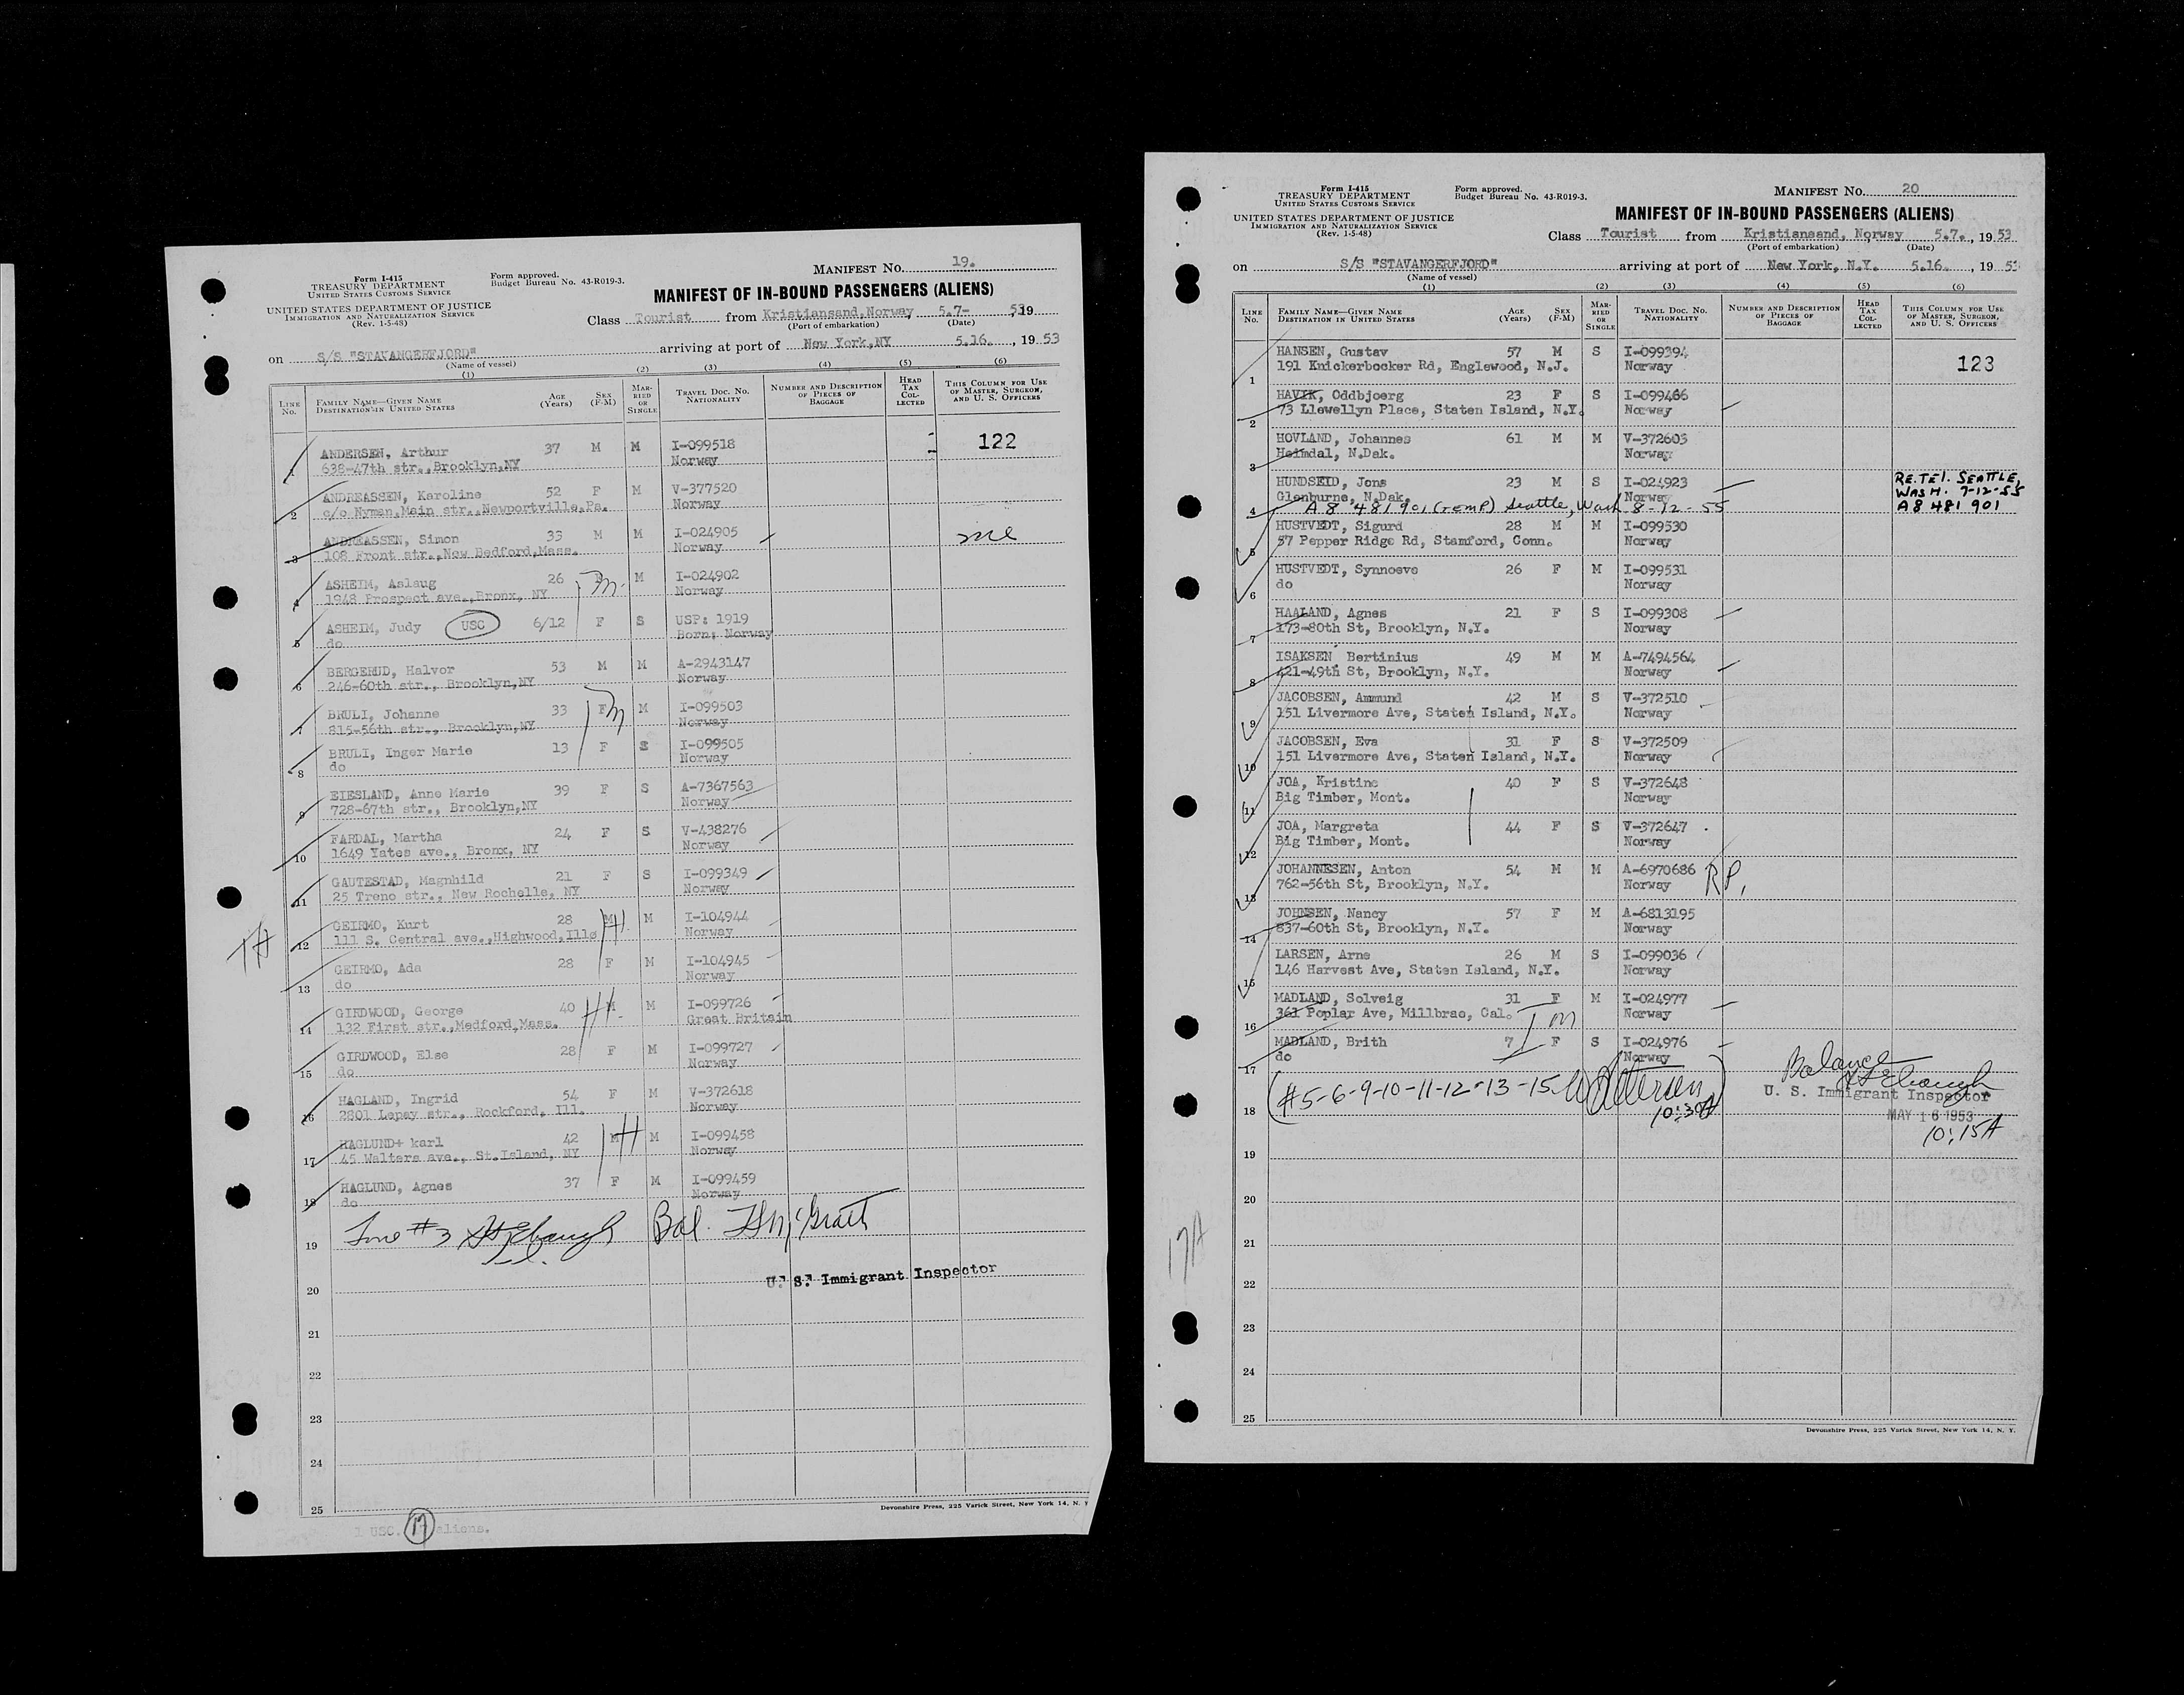 Form I-415
TREASURY DEPARTMENT
UNITED STATES CUSTOMS SERVICE
Form approved.
Budget Bureau No. 43-R019-3.
MANIFEST NO. 19.
UNITED STATES DEPARTMENT OF JUSTICE
IMMIGRATION AND NATURALIZATION SERVICE
(Rev. 1-5-48)
MANIFEST OF IN-BOUND PASSENGERS (ALIENS)
Class Tourist from Kristiansand,Norway 5.7- 5319
(Port of embarkation) (Date)
on S/S "STAVANGERFJORD" arriving at port of New York,NY 5.16. , 19 53
(Name of vessel)
(1) (2) (3) (4) (5) (6)
LINE No. FAMILY NAME—GIVEN NAME DESTINATION IN UNITED STATES AGE (Years) SEX (F-M) MARRIED OR SINGLE TRAVEL DOC. NO. NATIONALITY NUMBER AND DESCRIPTION OF PIECES OF BAGGAGE HEAD TAX COLLECTED THIS COLUMN FOR USE OF MASTER, SURGEON, AND U. S. OFFICERS
1 ANDERSEN, Arthur 37 M M I-099518 122
638-47th str.,Brooklyn,NY Norway
2 ANDREASSEN, Karoline 52 F M V-377520
c/o Nyman,Main str.,Newportville,Pa. Norway
3 ANDREASSEN, Simon 33 M M I-024905
108 Front str.,New Bedford,Mass. Norway
4 ASHEIM, Aslaug 26 F M I-024902
1948 Prospect ave.,Bronx, NY Norway
5 ASHEIM, Judy USC 6/12 F S USP: 1919
do Born: Norway
6 BERGERUD, Halvor 53 M M A-2943147
246-60th str., Brooklyn,NY Norway
7 BRULI, Johanne 33 F M I-099503
815-56th str., Brooklyn,NY Norway
8 BRULI, Inger Marie 13 F S I-099505
do Norway
9 EIESLAND, Anne Marie 39 F S A-7367563
728-67th str., Brooklyn,NY Norway
10 FARDAL, Martha 24 F S V-438276
1649 Yates ave., Bronx, NY Norway
11 GAUTESTAD, Magnhild 21 F S I-099349
25 Treno str., New Rochelle, NY Norway
12 GEIRMO, Kurt 28 M M I-104944
111 S. Central ave.,Highwood,Ills Norway
13 GEIRMO, Ada 28 F M I-104945
do Norway
14 GIRDWOOD, George 40 M M I-099726
132 First str.,Medford,Mass. Great Britain
15 GIRDWOOD, Else 28 F M I-099727
do Norway
16 HAGLAND, Ingrid 54 F M V-372618
2801 Lepay str., Rockford, Ill. Norway
17 HAGLUND+ karl 42 M M I-099458
45 Walters ave., St.Island, NY Norway
18 HAGLUND, Agnes 37 F M I-099459
do Norway
19 Line #3 Bal. McGrath
20 U. S. Immigrant Inspector
21
22
23
24
25
Devonshire Press, 225 Varick Street, New York 14, N. Y
1 USC. 17 aliens.
Form I-415
TREASURY DEPARTMENT
UNITED STATES CUSTOMS SERVICE
Form approved.
Budget Bureau No. 43-R019-3.
MANIFEST NO. 20
UNITED STATES DEPARTMENT OF JUSTICE
IMMIGRATION AND NATURALIZATION SERVICE
(Rev. 1-5-48)
MANIFEST OF IN-BOUND PASSENGERS (ALIENS)
Class Tourist from Kristiansand, Norway 5.7. , 19 53
(Port of embarkation) (Date)
on S/S "STAVANGERFJORD" arriving at port of New York, N.Y. 5.16. , 19 53
(Name of vessel)
(1) (2) (3) (4) (5) (6)
LINE No. FAMILY NAME—GIVEN NAME DESTINATION IN UNITED STATES AGE (Years) SEX (F-M) MARRIED OR SINGLE TRAVEL DOC. NO. NATIONALITY NUMBER AND DESCRIPTION OF PIECES OF BAGGAGE HEAD TAX COLLECTED THIS COLUMN FOR USE OF MASTER, SURGEON, AND U. S. OFFICERS
1 HANSEN, Gustav 57 M S I-099394 123
191 Knickerbocker Rd, Englewood, N.J. Norway
2 HAVIK, Oddbjoerg 23 F S I-099466
73 Llewellyn Place, Staten Island, N.Y. Norway
3 HOVLAND, Johannes 61 M M V-372603
Heimdal, N.Dak. Norway
4 HUNDSEID, Jons 23 M S I-024923 RE.TEL. SEATTLE,
Glenburne, N.Dak. Norway WASH. 7-12-55
A8 481 901 (TEMP) Seattle, Wash 8-12-55 A8 481 901
5 HUSTVEDT, Sigurd 28 M M I-099530
57 Pepper Ridge Rd, Stamford, Conn. Norway
6 HUSTVEDT, Synnoeve 26 F M I-099531
do Norway
7 HAALAND, Agnes 21 F S I-099308
173-80th St, Brooklyn, N.Y. Norway
8 ISAKSEN, Bertinius 49 M M A-7494564
421-49th St, Brooklyn, N.Y. Norway
9 JACOBSEN, Ammund 42 M S V-372510
151 Livermore Ave, Staten Island, N.Y. Norway
10 JACOBSEN, Eva 31 F S V-372509
151 Livermore Ave, Staten Island, N.Y. Norway
11 JOA, Kristine 40 F S V-372648
Big Timber, Mont. Norway
12 JOA, Margreta 44 F S V-372647
Big Timber, Mont. Norway
13 JOHANNESEN, Anton 54 M M A-6970686 RP.
762-56th St, Brooklyn, N.Y. Norway
14 JOHNSEN, Nancy 57 F M A-6813195
837-60th St, Brooklyn, N.Y. Norway
15 LARSEN, Arne 26 M S I-099036
146 Harvest Ave, Staten Island, N.Y. Norway
16 MADLAND, Solveig 31 F M I-024977
361 Poplar Ave, Millbrae, Cal. Norway
17 MADLAND, Brith 7 F S I-024976
do Norway
Balance
18 (#5-6-9-10-11-12-13-15 U. S. Immigrant Inspector
10:30A MAY 16 1953
10:15A
19
20
21
17A
22
23
24
25
Devonshire Press, 225 Varick Street, New York 14, N. Y.